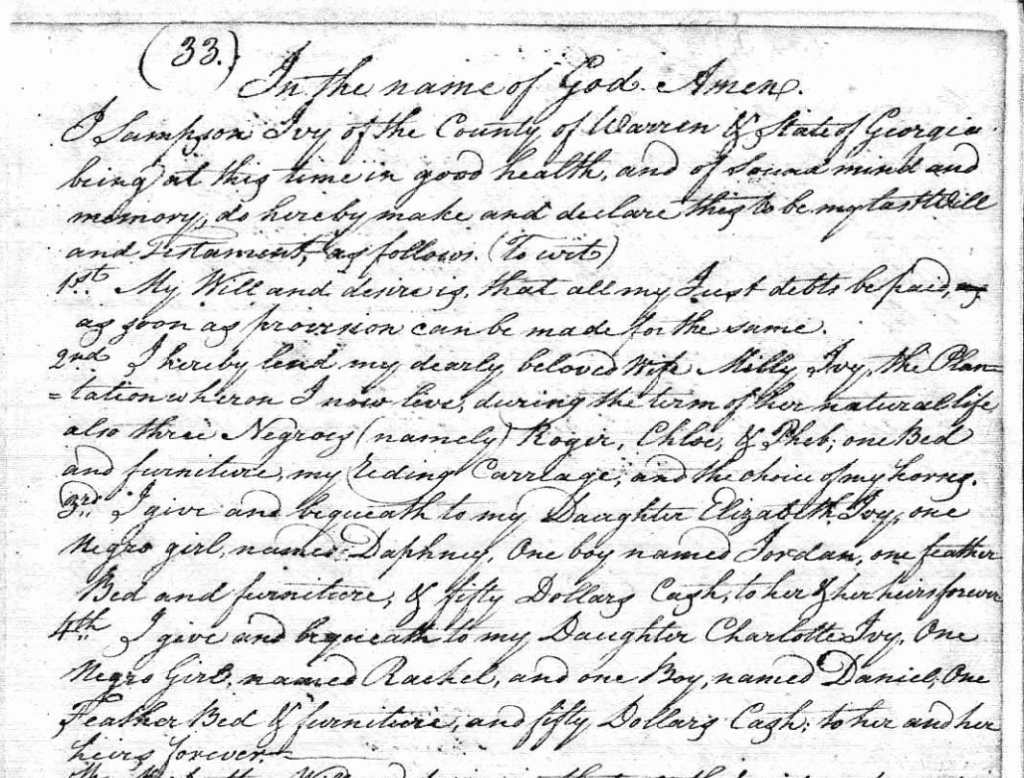 (33.)
In the name of God. Amen.
I Sampson Ivy of the County of Warren & State of Georgia
being at this time in good health, and of sound mind and
memory, do hereby make and declare this to be my last Will
and Testament, as follows. (To wit)
1st. My Will and desire is, that all my Just debts be paid,
as soon as provision can be made for the same.
2nd. I hereby lend my dearly beloved Wife Milly Ivy, the Plan=
=tation wheron I now live, during the term of her natural life
also three Negroes (namely) Roger, Chloe, & Pheb; one Bed
and furniture, my Riding Carriage, and the choice of my horses.
3rd. I give and bequeath to my Daughter Elizabeth Ivy, one
Negro girl, named Daphney, One boy named Jordan, one feather
Bed and furniture, & fifty Dollars Cash, to her & her heirs forever
4th. I give and bequeath to my Daughter Charlotte Ivy, One
Negro Girl, named Rachel, and one Boy, named Daniel, One
Feather Bed & furniture, and fifty Dollars Cash; to her and her
heirs forever.